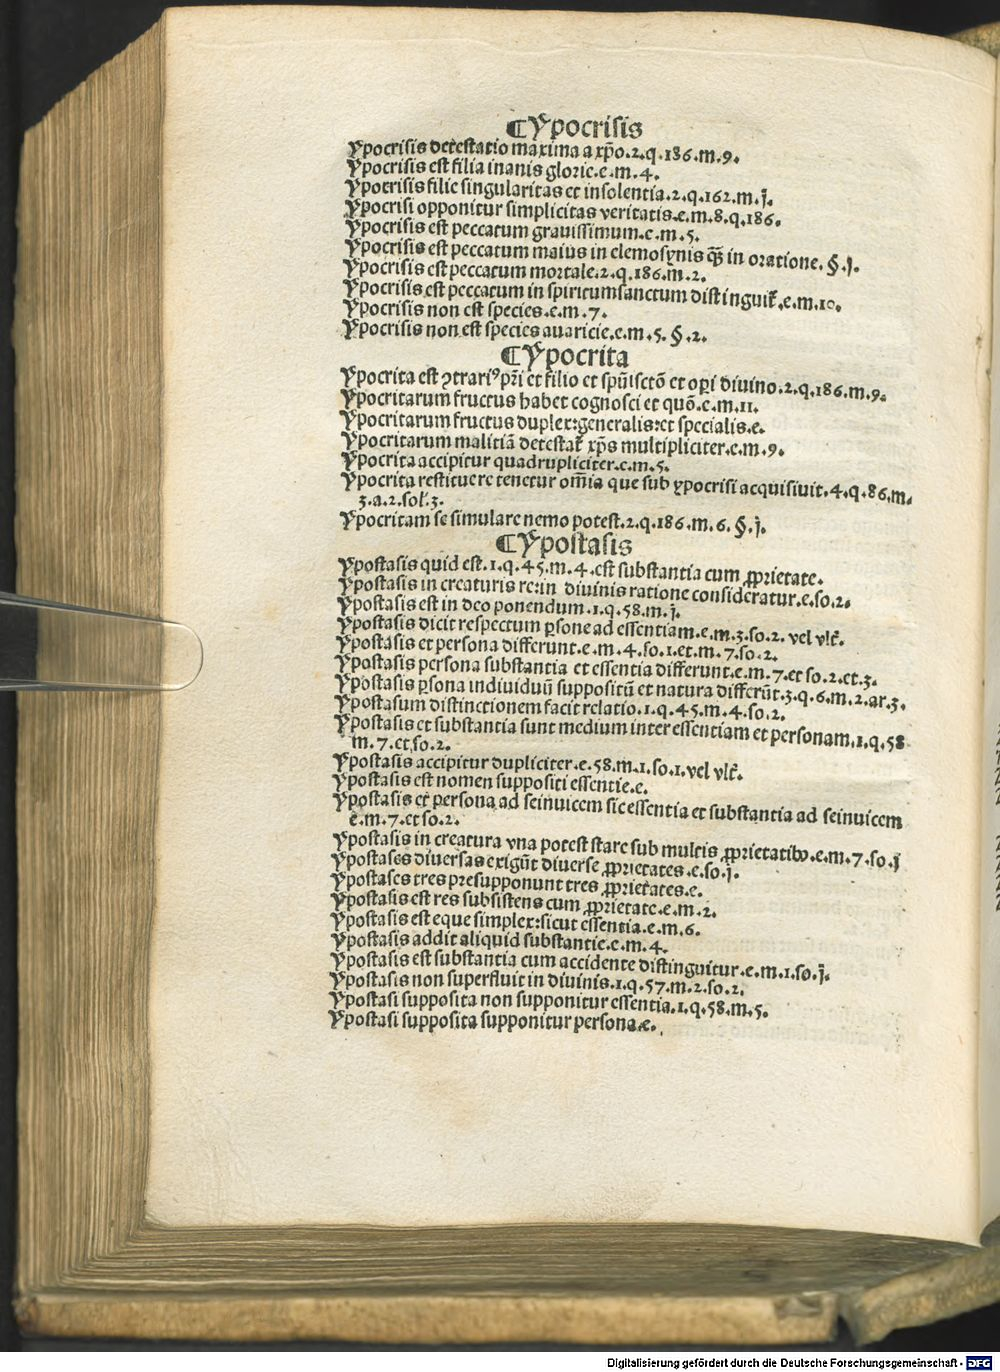 ¶Ypocrisis
Ypocrisis detestatio maxima a xp̄o.2.q.186.m.9.
Ypocrisis est filia inanis glorie.e.m.4.
Ypocrisis filie singularitas et insolentia.2.q.162.m.j.
Ypocrisi opponitur simplicitas veritatis.e.m.8.q.186.
Ypocrisis est peccatum grauissimum.e.m.5.
Ypocrisis est peccatum maius in elemosynis q̄ꝫ in oratione.§.j.
Ypocrisis est peccatum mortale.2.q.186.m.2.
Ypocrisis est peccatum in spiritumsanctum distinguit᷑.e.m.10.
Ypocrisis non est species.e.m.7.
Ypocrisis non est species auaricie.e.m.5.§.2.
¶Ypocrita
Ypocrita est ꝯtrariꝰ pr̄i et filio et spūiſctō et oꝑi diuino.2.q.186.m.9.
Ypocritarum fructus habet cognosci et quō.e.m.11.
Ypocritarum fructus duplex:generalis:et specialis.e.
Ypocritarum malitiā detestat᷑ xp̄s multipliciter.e.m.9.
Ypocrita accipitur quadrupliciter.e.m.5.
Ypocrita restituere tenetur om̄ia que sub ypocrisi acquisiuit.4.q.86.m.
3.a.2.sol̓.3.
Ypocritam se simulare nemo potest.2.q.186.m.6.§.j.
¶Ypostasis
Ypostasis quid est.1.q.45.m.4.est substantia cum ꝓprietate.
Ypostasis in creaturis re:in diuinis ratione consideratur.e.so.2.
Ypostasis est in deo ponendum.1.q.58.m.j.
Ypostasis dicit respectum ꝑsone ad essentiam.e.m.3.so.2. vel vlt̓.
Ypostasis et persona differunt.e.m.4.so.1.et.m.7.so.2.
Ypostasis persona substantia et essentia differunt.e.m.7.et so.2.et.3.
Ypostasis ꝑsona indiuiduū suppositū et natura differūt.3.q.6.m.2.ar.3.
Ypostasum distinctionem facit relatio.1.q.45.m.4.so.2.
Ypostasis et substantia sunt medium inter essentiam et personam.1.q.58
m.7.et.so.2.
Ypostasis accipitur dupliciter.e.58.m.1.so.1.vel vlt̓.
Ypostasis est nomen suppositi essentie.e.
Ypostasis et persona ad seinuicem sic essentia et substantia ad seinuicem
e.m.7.et so.2.
Ypostasis in creatura vna potest stare sub multis ꝓprietatibꝰ.e.m.7.so.j
Ypostases diuersas exigūt diuerse ꝓprietates.e.so.j.
Ypostases tres presupponunt tres ꝓprietates.e.
Ypostasis est res subsistens cum ꝓprietate.e.m.2.
Ypostasis est eque simplex:sicut essentia.e.m.6.
Ypostasis addit aliquid substantie.e.m.4.
Ypostasis est substantia cum accidente distinguitur.e.m.1.so.j.
Ypostasis non superfluit in diuinis.1.q.57.m.2.so.2.
Ypostasi supposita non supponitur essentia.1.q.58.m.5.
Ypostasi supposita supponitur persona.e.
Digitalisierung gefördert durch die Deutsche Forschungsgemeinschaft - DFG